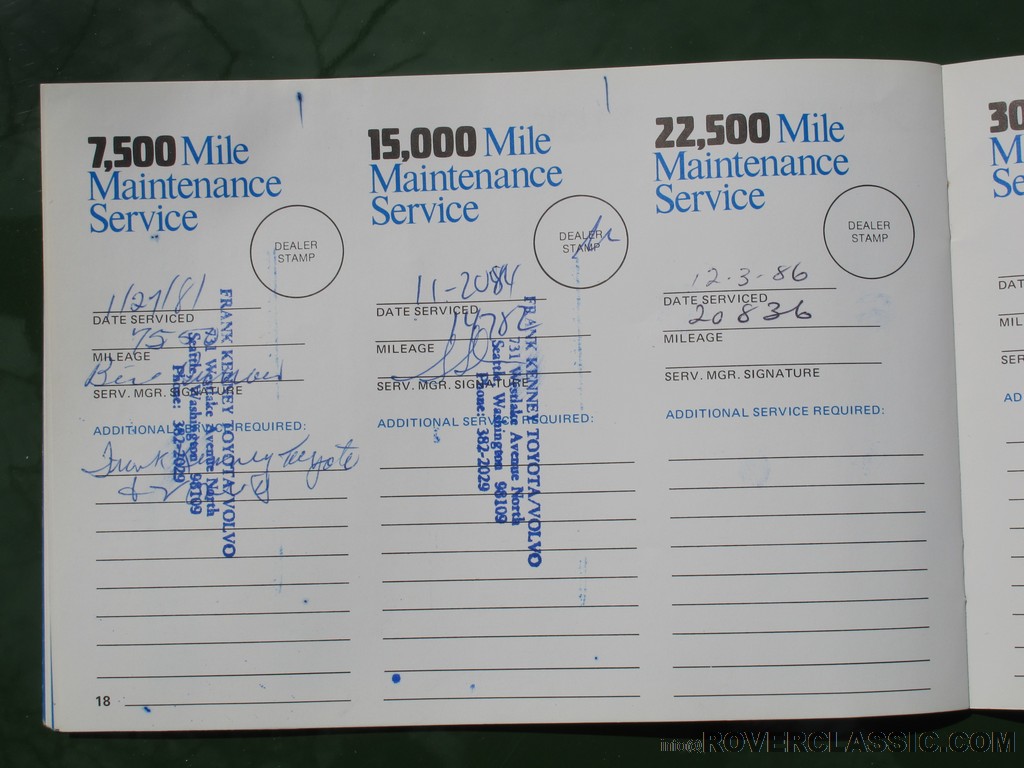 7,500 Mile
Maintenance
Service
DEALER
STAMP
1/27/81
DATE SERVICED
MILEAGE
SERV. MGR. SIGNATURE
ADDITIONAL SERVICE REQUIRED:
Frank Kenney Toyota
FRANK KENNEY TOYOTA/VOLVO
731 Westlake Avenue North
Seattle, Washington 98109
Phone: 382-2029
18
15,000 Mile
Maintenance
Service
DEALER
STAMP
11-2084
DATE SERVICED
MILEAGE
SERV. MGR. SIGNATURE
ADDITIONAL SERVICE REQUIRED:
FRANK KENNEY TOYOTA/VOLVO
731 Westlake Avenue North
Seattle, Washington 98109
Phone: 382-2029
22,500 Mile
Maintenance
Service
DEALER
STAMP
12-3-86
DATE SERVICED
20836
MILEAGE
SERV. MGR. SIGNATURE
ADDITIONAL SERVICE REQUIRED:
30
M
Se
DAT
MIL
SER
AD
info@ROVERCLASSIC.COM